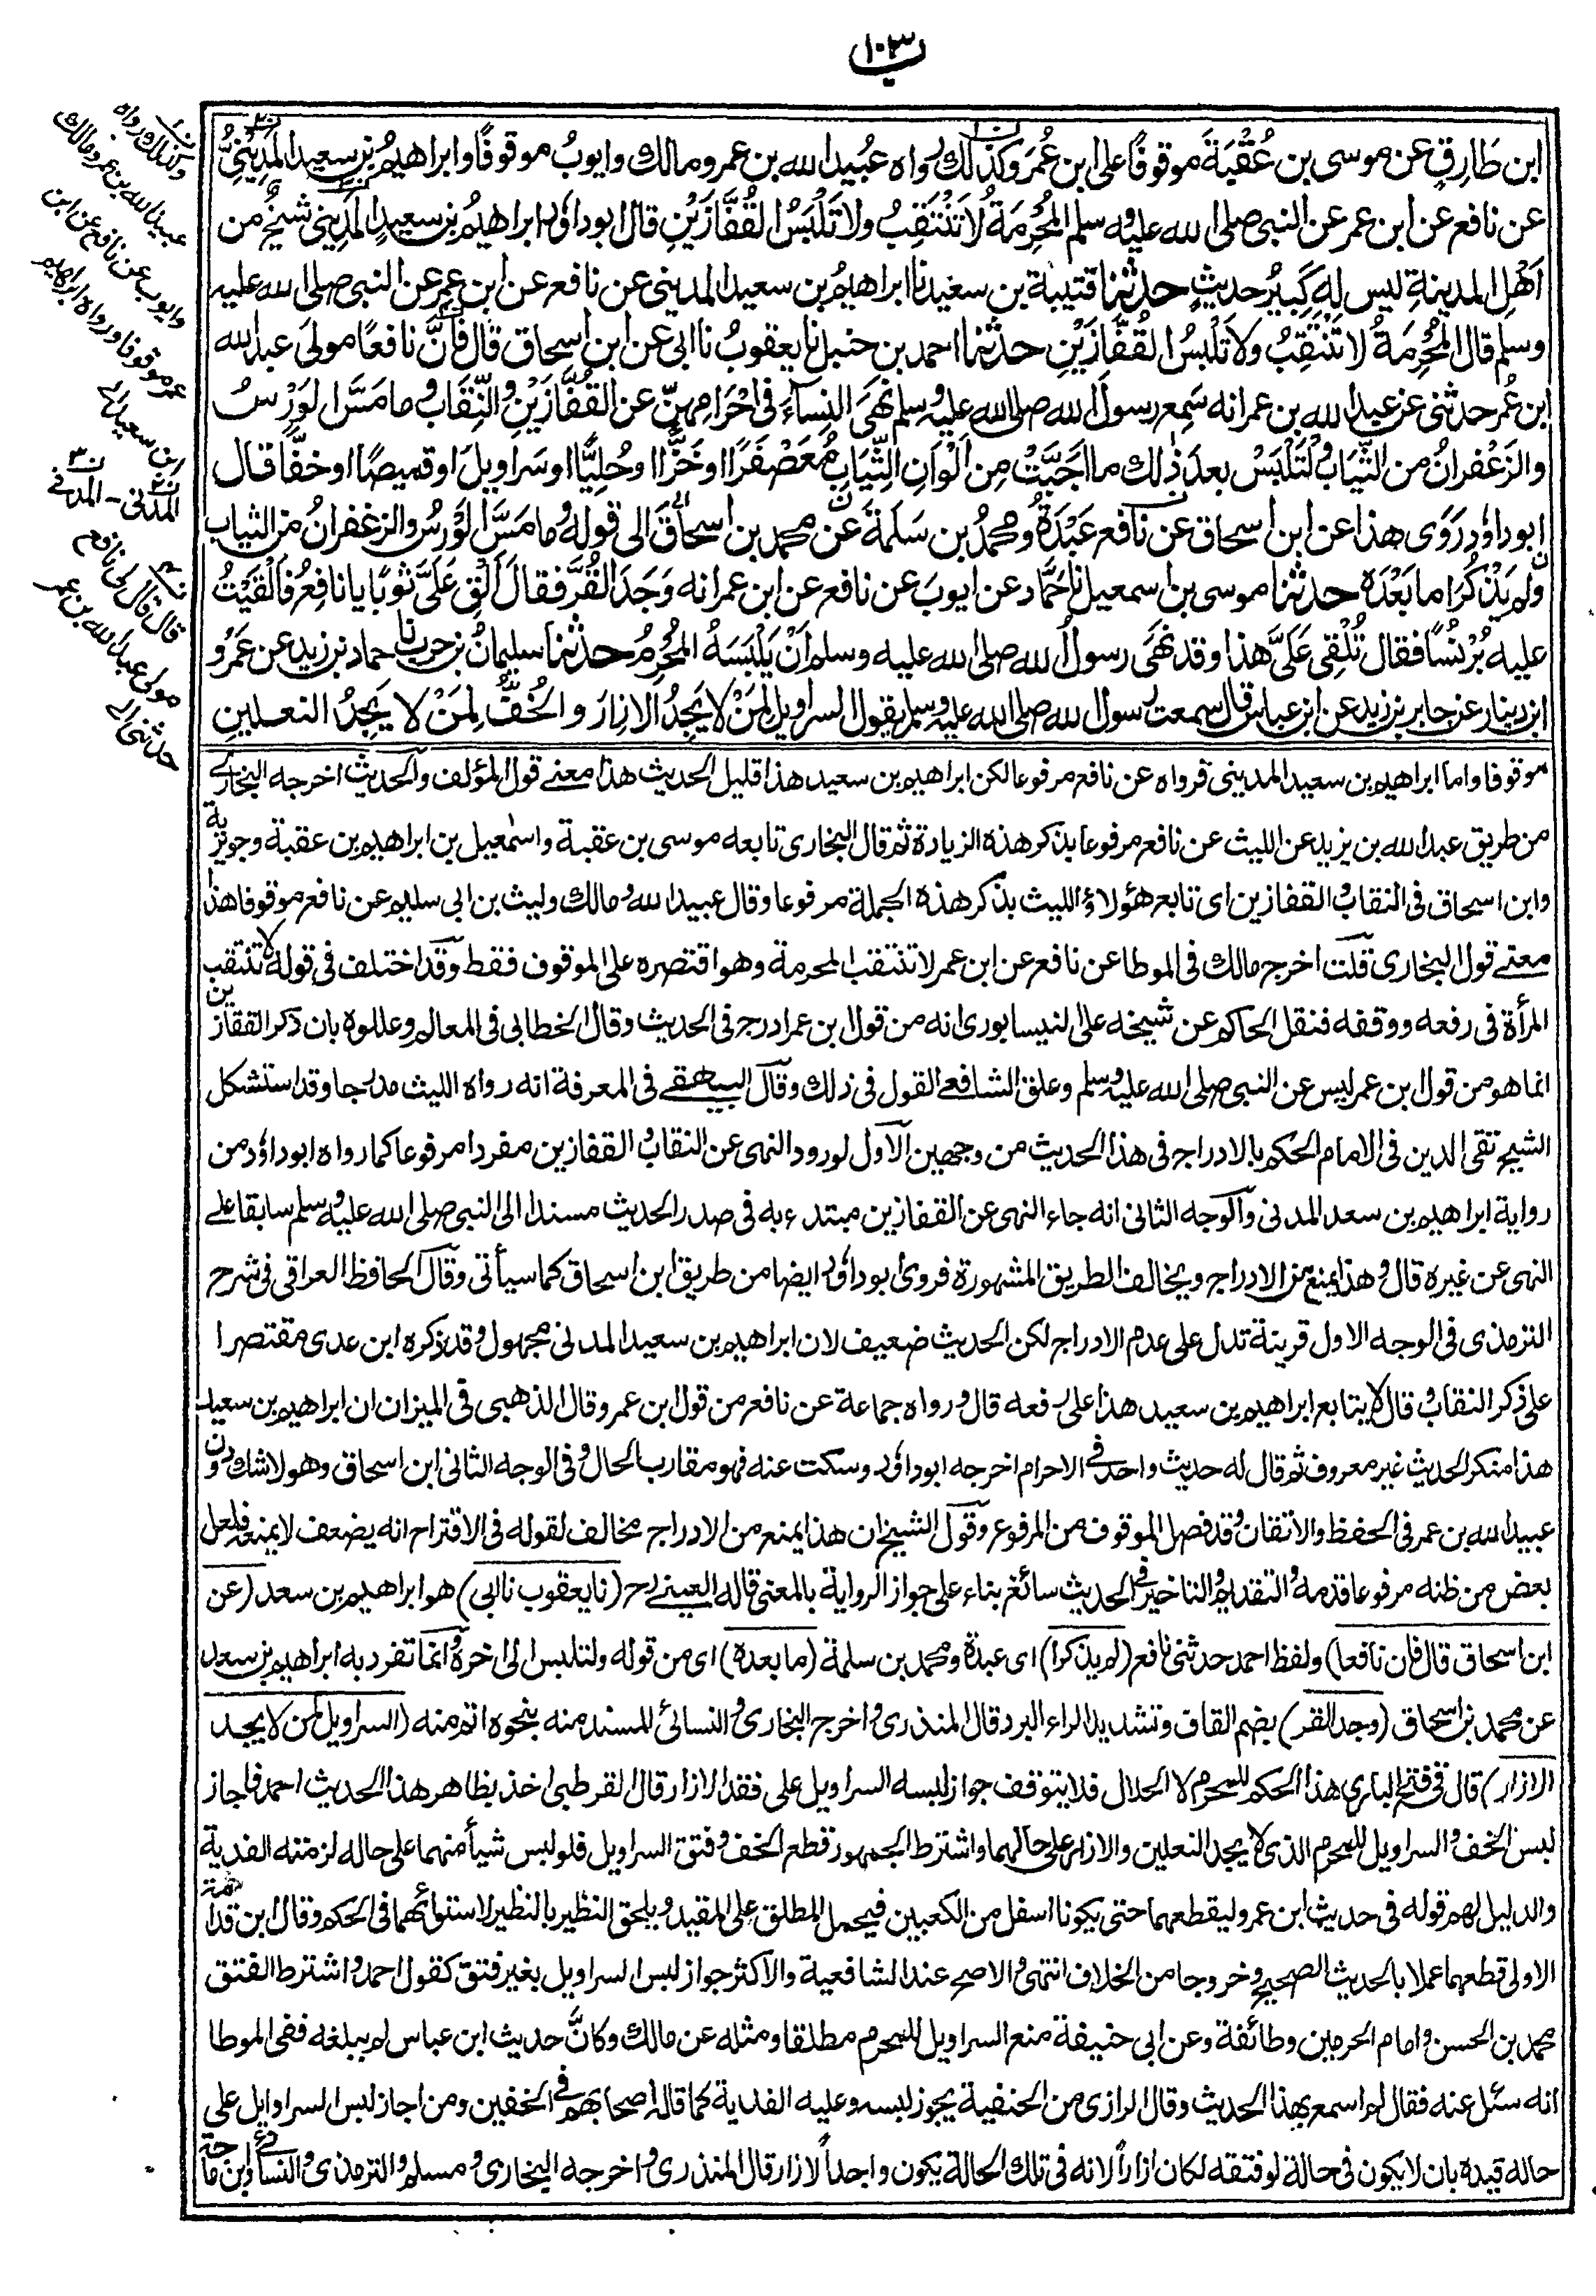 ١٠٣
ابن طَارِقٍ عن موسى بن عُقْبَةَ موقوفًا على ابن عُمَرَ وكذلك رواه عُبيد الله بن عمر ومالك وايوبُ موقوفًا وابراهيمُ بن سعيد المَدِينِيُّ
عن نافع عن ابن عمر عن النبى صلى الله عليه وسلم المُحْرِمَةُ لا تَنْتَقِبُ ولا تَلْبَسُ القُفَّازَيْنِ قال ابو داؤد ابراهيمُ بن سعيدٍ المَدِينى شيخٌ من
اَهْلِ المدينةِ ليس له كَبِيرُ حديثٍ حدثنا قتيبة بن سعيد نا ابراهيمُ بن سعيد المدينى عن نافع عن ابن عمر عن النبى صلى الله عليه
وسلم قال المُحْرِمَةُ لا تَنْتَقِبُ ولا تَلْبَسُ القُفَّازَيْنِ حدثنا احمد بن حنبل نا يعقوبُ نا ابى عن ابن اسحاق قال فَاِنَّ نافعًا مولىَ عبد الله
ابن عُمر حدثنى عن عبد الله بن عمر انه سَمِعَ رسولَ الله صلى الله عليه وسلم نَهىَ النِسآءَ فى اِحْرَامِهِنَّ عن القُفَّازَيْنِ والنِّقَابِ وما مَسَّ الوَرْسُ
والزَعْفرانُ من الثِّيَابِ ولْتَلْبَسْ بعدَ ذٰلك ما اَحَبَّتْ مِن اَلْوَانِ الثِّيَابِ مُعَصْفَرًا اوخَزًّا اوحُلِيًّا اوسَراويلَ اوقميصًا اوخفًّا قال
ابو داؤد رَوَى هذا عن ابن اسحاق عن نافع عَبْدَةُ ومحمدُ بن سَلَمَةَ عن محمد بن اسحاقَ الى قوله وما مَسَّ الوَرْسُ والزعفرانُ من الثياب
ولم يَذْكُرَا ما بَعْدَه حدثنا موسى بن اسمعيل نا حَمَّاد عن ايوبَ عن نافع عن ابن عمر انه وَجَدَ القُرَّ فقال اَلْقِ عَلَىَّ ثوبًا يا نافِعُ فاَلْقَيْتُ
عليه بُرْنُسًا فقال تُلْقِى عَلَىَّ هذا وقد نَهىَ رسولُ الله صلى الله عليه وسلم اَنْ يَلْبَسَهُ المُحْرِمُ حدثنا سليمانُ بن حرب نا حماد بن زيد عن عَمْرو
ابن دينار عن جابر بن زيد عن ابن عباس قال سمعت رسول الله صلى الله عليه وسلم يقول السراويل لِمَنْ لا يَجِدُ الاِزارَ والخُفُّ لِمَنْ لا يَجِدُ النعلين
وكذلك رواه
عبيد الله بن عمر ومالك
وايوب عن نافع عن ابن
عمر موقوفا ورواه ابراهيم
بن سعيد
المدنى - المدنى
قال قال لى نافع
مولى عبد الله بن عمر
حدثنى
موقوفا واما ابراهيم بن سعيد المدينى فرواه عن نافع مرفوعا لكن ابراهيم بن سعيد هذا قليل الحديث هذا معنے قول المؤلف والحديث اخرجه البخارے
من طريق عبد الله بن يزيد عن الليث عن نافع مرفوعا بذكر هذه الزيادة ثم قال البخارى تابعه موسى بن عقبة واسمٰعيل بن ابراهيم بن عقبة وجويرية
وابن اسحاق فى النقاب والقفازين اى تابع هؤلاء الليث بذكر هذه الجملة مرفوعا وقال عبيد الله ومالك وليث بن ابى سليم عن نافع موقوفا هذا
معنے قول البخارى قلت اخرج مالك فى الموطا عن نافع عن ابن عمر لا تنتقب المحرمة وهو اقتصره على الموقوف فقط وقد اختلف فى قوله لا تنتقب
المرأة فى رفعه ووقفه فنقل الحاكم عن شيخه على النيسابورى انه من قول ابن عمر ادرج فى الحديث وقال الخطابى فى المعالم وعللوه بان ذكر القفازين
انما هو من قول ابن عمر ليس عن النبى صلى الله عليه وسلم وعلق الشافعے القول فى ذلك وقال البيهقے فى المعرفة انه رواه الليث مدرجا وقد استشكل
الشيخ تقى الدين فى الامام الحكم بالادراج فى هذا الحديث من وجهين الاول لورود النهى عن النقاب والقفازين مفردا مرفوعا كما رواه ابوداؤد من
رواية ابراهيم بن سعد المدنى والوجه الثانى انه جاء النهى عن القفازين مبتدء به فى صدر الحديث مسندا الى النبى صلى الله عليه وسلم سابقا علے
النهى عن غيره قال وهذا يمنع من الادراج ويخالف الطريق المشهورة فروى ابو داؤد ايضا من طريق ابن اسحاق كما سيأتى وقال الحافظ العراقى فى شرح
الترمذى فى الوجه الاول قرينة تدل على عدم الادراج لكن الحديث ضعيف لان ابراهيم بن سعيد المدنى مجهول وقد ذكره ابن عدى مقتصرا
على ذكر النقاب وقال لا يتابع ابراهيم بن سعيد هذا على رفعه قال ورواه جماعة عن نافع من قول ابن عمر وقال الذهبى فى الميزان ان ابراهيم بن سعيد
هذا منكر الحديث غير معروف ثم قال له حديث واحد فى الاحرام اخرجه ابو داؤد وسكت عنه فهو مقارب الحال وفى الوجه الثانى ابن اسحاق وهو لا شك دون
عبيد الله بن عمر فى الحفظ والاتقان وقد فصل الموقوف من المرفوع وقول الشيخ ان هذا يمنع من الادراج مخالف لقوله فى الاقتراح انه يضعف لا يمنعه فلعل
بعض من ظنه مرفوعا قدمه والتقديم والتاخير فى الحديث سائغ بناء على جواز الرواية بالمعنى قاله العينے رح (نا يعقوب نا ابى) هو ابراهيم بن سعد (عن
ابن اسحاق قال فان نافعا) ولفظ احمد حدثنى نافع (لم يذكرا) اى عبدة ومحمد بن سلمة (ما بعده) اى من قوله ولتلبس الى اخره وانما تفرد به ابراهيم بن سعد
عن محمد بن اسحاق (وجد القر) بضم القاف وتشديد الراء البرد قال المنذرى واخرج البخارى والنسائى المسند منه بنحوه اتم منه (السراويل لمن لا يجد
الازار) قال فى فتح البارى هذا الحكم للمحرم لا الحلال فلا يتوقف جواز لبسه السراويل على فقد الازار قال القرطبى اخذ بظاهر هذا الحديث احمد فاجاز
لبس الخف والسراويل للمحرم الذى لا يجد النعلين والازار على حالهما واشترط الجمهور قطع الخف وفتق السراويل فلو لبس شيأ منهما على حاله لزمته الفدية
والدليل لهم قوله فى حديث ابن عمر وليقطعهما حتى يكونا اسفل من الكعبين فيحمل المطلق على المقيد ويلحق النظير بالنظير لاستوائهما فى الحكم وقال ابن قدامة
الاولى قطعهما عملا بالحديث الصحيح وخروجا من الخلاف انتهى والاصح عند الشافعية والاكثر جواز لبس السراويل بغير فتق كقول احمد واشترط الفتق
محمد بن الحسن وامام الحرمين وطائفة وعن ابى حنيفة منع السراويل للمحرم مطلقا ومثله عن مالك وكانَّ حديث ابن عباس لم يبلغه ففى الموطا
انه سئل عنه فقال لم اسمع بهذا الحديث وقال الرازى من الحنفية يجوز لبسه وعليه الفدية كما قاله اصحابهم فى الخفين ومن اجاز لبس السراويل على
حاله قيده بان لا يكون فى حالة لو فتقه لكان ازاراً لانه فى تلك الحالة يكون واجداً لازار قال المنذرى واخرجه البخارى ومسلم والترمذى والنسائى وابن ماجة